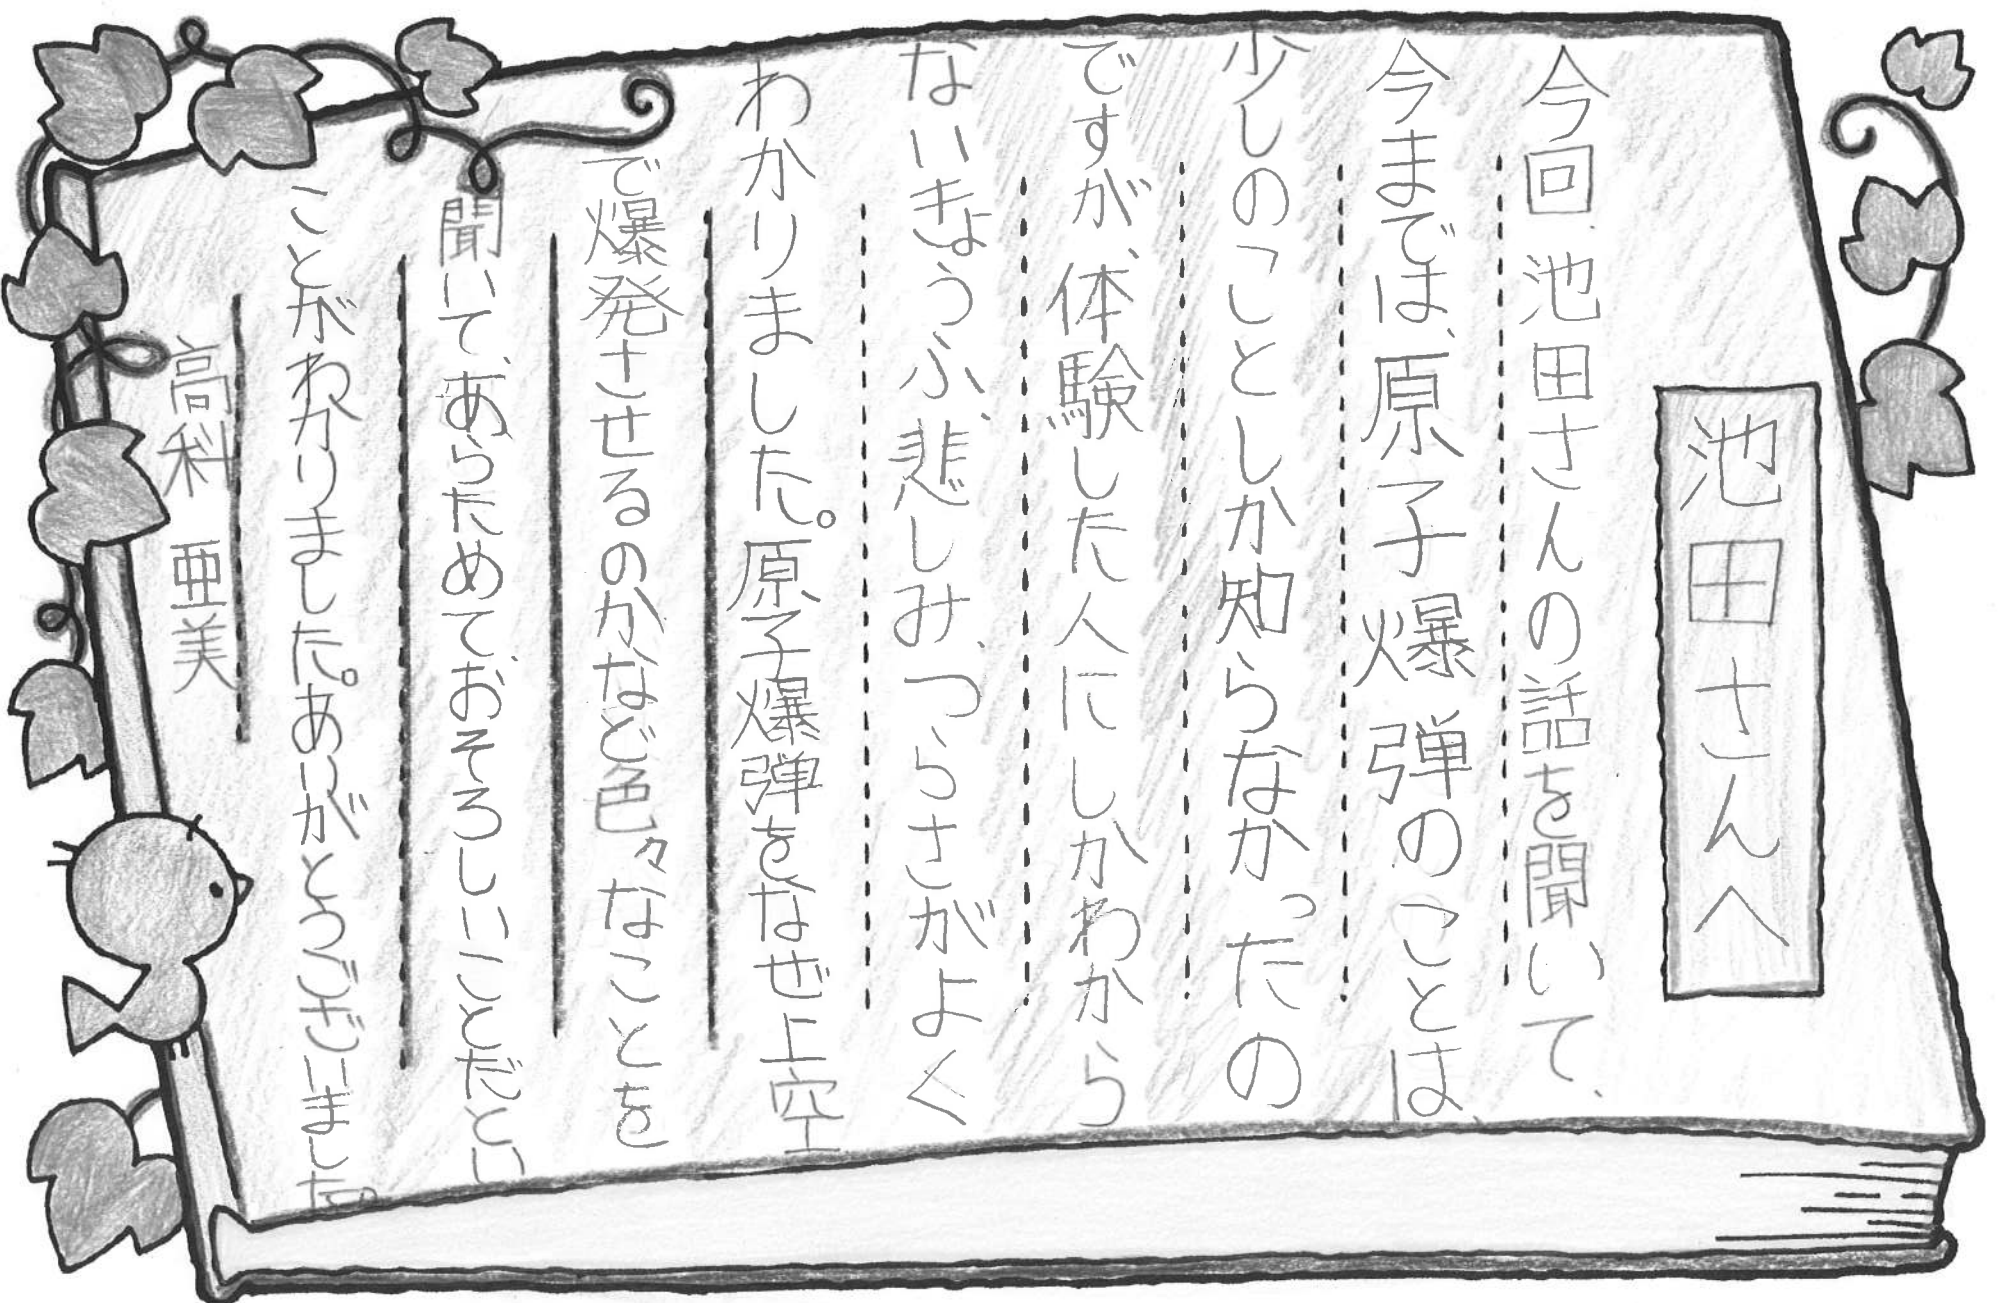 池田さんへ
今回、池田さんの話を聞いて、
今までは、原子爆弾のことは、
少しのことしか知らなかったの
ですが、体験した人にしかわから
ないきょうふ、悲しみ、つらさがよく
わかりました。原子爆弾をなぜ上空
で爆発させるのかなど色々なことを
聞いて、あらためておそろしいことだとい
ことがわかりました。ありがとうございました。
高科 亜美